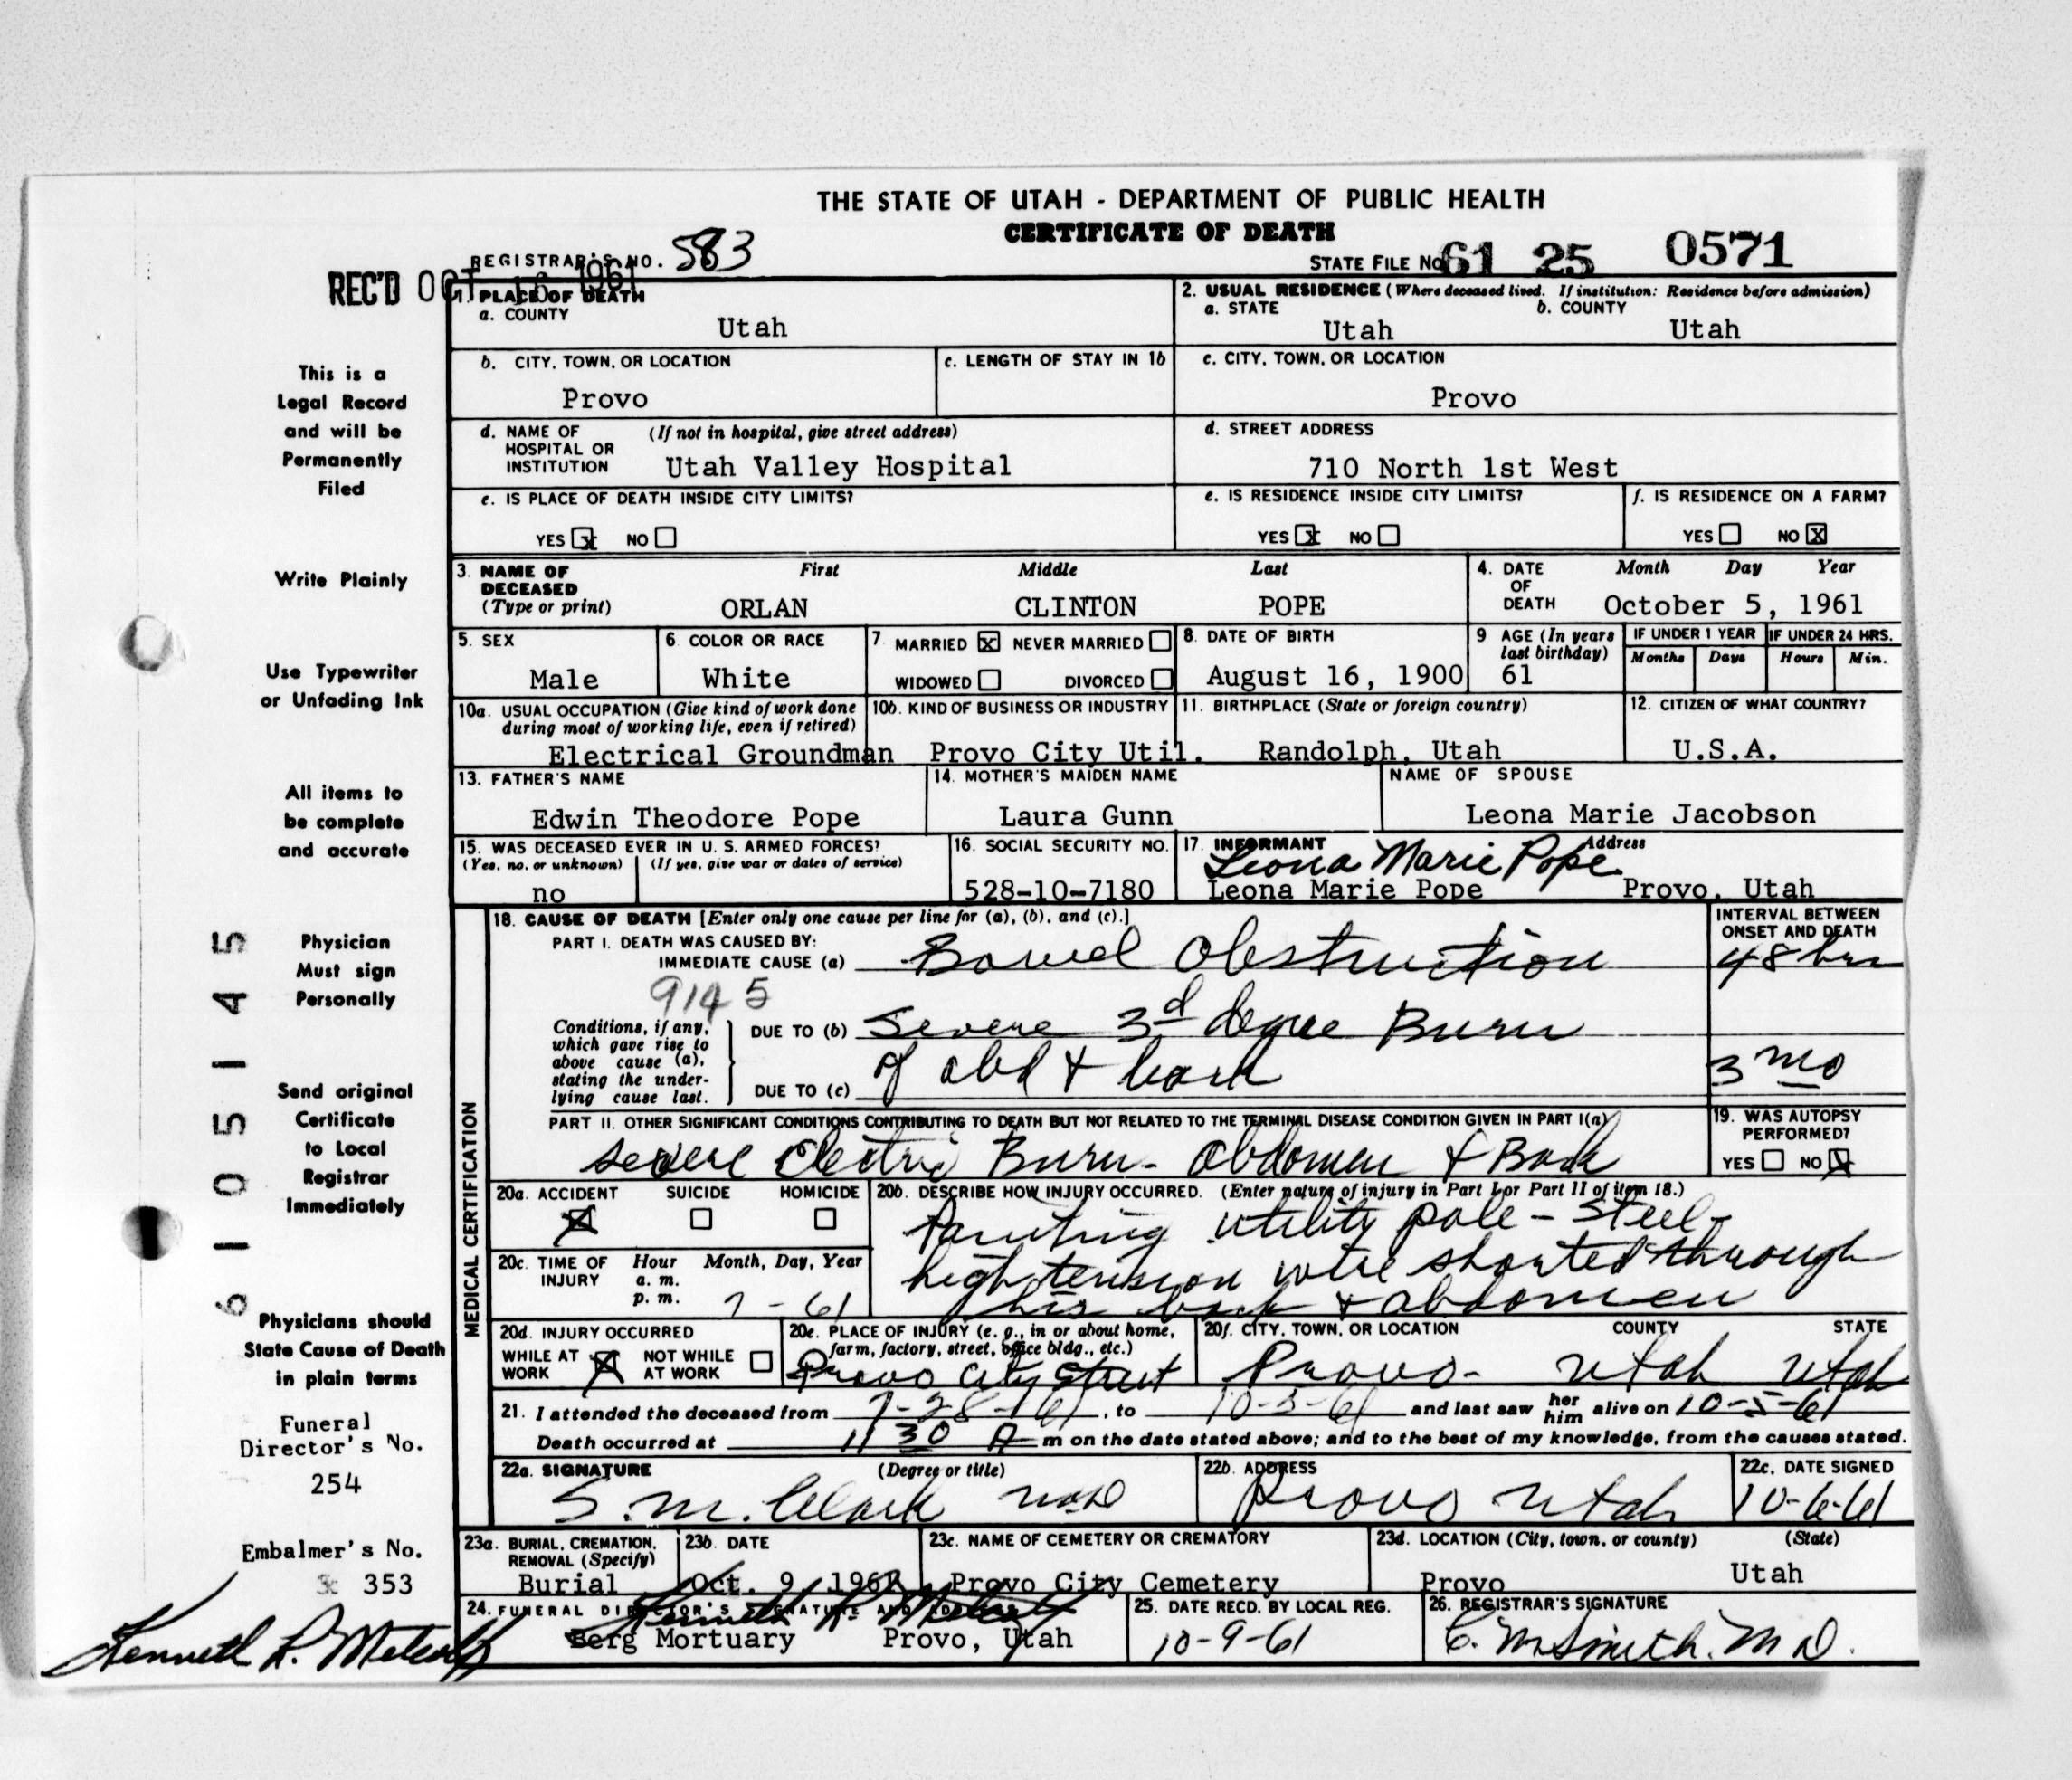 THE STATE OF UTAH - DEPARTMENT OF PUBLIC HEALTH
CERTIFICATE OF DEATH
REGISTRAR'S NO. 583
STATE FILE NO. 61 25 0571
REC'D OCT 16 1961
1. PLACE OF DEATH
a. COUNTY
Utah
2. USUAL RESIDENCE (Where deceased lived. If institution: Residence before admission)
a. STATE b. COUNTY
Utah Utah
b. CITY, TOWN, OR LOCATION
Provo
c. LENGTH OF STAY IN 1b
c. CITY, TOWN, OR LOCATION
Provo
d. NAME OF (If not in hospital, give street address)
HOSPITAL OR
INSTITUTION Utah Valley Hospital
d. STREET ADDRESS
710 North 1st West
e. IS PLACE OF DEATH INSIDE CITY LIMITS?
YES x NO
e. IS RESIDENCE INSIDE CITY LIMITS?
YES x NO
f. IS RESIDENCE ON A FARM?
YES NO x
3. NAME OF First Middle Last
DECEASED
(Type or print) ORLAN CLINTON POPE
4. DATE Month Day Year
OF
DEATH October 5, 1961
5. SEX
Male
6. COLOR OR RACE
White
7. MARRIED x NEVER MARRIED
WIDOWED DIVORCED
8. DATE OF BIRTH
August 16, 1900
9 AGE (In years
last birthday)
61
IF UNDER 1 YEAR
Months Days
IF UNDER 24 HRS.
Hours Min.
10a. USUAL OCCUPATION (Give kind of work done
during most of working life, even if retired)
Electrical Groundman
10b. KIND OF BUSINESS OR INDUSTRY
Provo City Util.
11. BIRTHPLACE (State or foreign country)
Randolph, Utah
12. CITIZEN OF WHAT COUNTRY?
U.S.A.
13. FATHER'S NAME
Edwin Theodore Pope
14. MOTHER'S MAIDEN NAME
Laura Gunn
NAME OF SPOUSE
Leona Marie Jacobson
15. WAS DECEASED EVER IN U. S. ARMED FORCES?
(Yes, no, or unknown) (If yes, give war or dates of service)
no
16. SOCIAL SECURITY NO.
528-10-7180
17. INFORMANT Address
Leona Marie Pope
Leona Marie Pope Provo, Utah
18. CAUSE OF DEATH [Enter only one cause per line for (a), (b), and (c).]
PART I. DEATH WAS CAUSED BY:
IMMEDIATE CAUSE (a) Bowel Obstruction
INTERVAL BETWEEN
ONSET AND DEATH
48 hrs
9145
Conditions, if any,
which gave rise to
above cause (a),
stating the under-
lying cause last.
DUE TO (b) Severe 3d degree Burn
of abd & back
DUE TO (c)
3 mo
PART II. OTHER SIGNIFICANT CONDITIONS CONTRIBUTING TO DEATH BUT NOT RELATED TO THE TERMINAL DISEASE CONDITION GIVEN IN PART I(a)
severe Electric Burn - Abdomen & Back
19. WAS AUTOPSY
PERFORMED?
YES NO x
MEDICAL CERTIFICATION
20a. ACCIDENT SUICIDE HOMICIDE
x
20b. DESCRIBE HOW INJURY OCCURRED. (Enter nature of injury in Part I or Part II of item 18.)
Painting utility pole - Steel -
high tension wire shorted through
his back & abdomen
20c. TIME OF Hour Month, Day, Year
INJURY a. m.
p. m. 7 - 61
20d. INJURY OCCURRED
WHILE AT WORK x NOT WHILE AT WORK
20e. PLACE OF INJURY (e. g., in or about home,
farm, factory, street, office bldg., etc.)
Provo City Street
20f. CITY, TOWN, OR LOCATION COUNTY STATE
Provo - Utah Utah
21. I attended the deceased from 7-28-61, to 10-5-61 and last saw her him alive on 10-5-61
Death occurred at 11 30 A m on the date stated above; and to the best of my knowledge, from the causes stated.
22a. SIGNATURE (Degree or title)
S. M. Clark MD
22b. ADDRESS
Provo Utah
22c. DATE SIGNED
10-6-61
23a. BURIAL, CREMATION,
REMOVAL (Specify)
Burial
23b. DATE
Oct. 9 1961
23c. NAME OF CEMETERY OR CREMATORY
Provo City Cemetery
23d. LOCATION (City, town, or county) (State)
Provo Utah
24. FUNERAL DIRECTOR'S SIGNATURE AND ADDRESS
Kenneth R. Metcalf
Berg Mortuary Provo, Utah
25. DATE RECD. BY LOCAL REG.
10-9-61
26. REGISTRAR'S SIGNATURE
C. M. Smith. M D.
This is a
Legal Record
and will be
Permanently
Filed
Write Plainly
Use Typewriter
or Unfading Ink
All items to
be complete
and accurate
Physician
Must sign
Personally
Send original
Certificate
to Local
Registrar
Immediately
Physicians should
State Cause of Death
in plain terms
Funeral
Director's No.
254
Embalmer's No.
353
Kenneth R. Metcalf
61051145